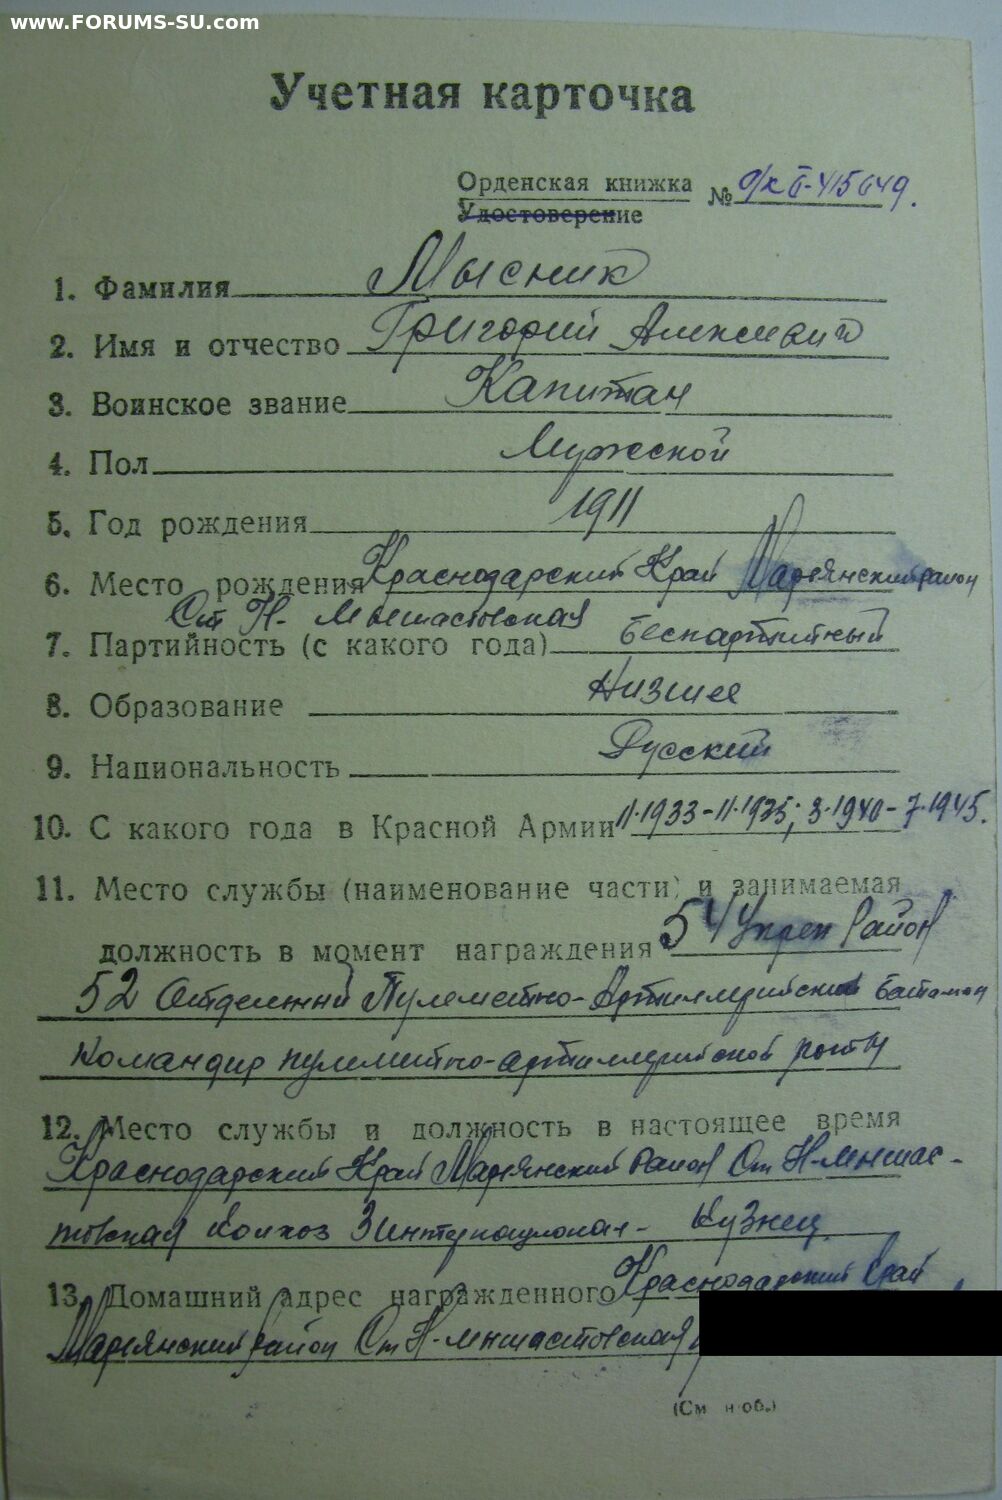 www.FORUMS-SU.com
Учетная карточка
Орденская книжка № о/к Б-415649.
Удостоверение
1. Фамилия Мысник
2. Имя и отчество Григорий Алексеевич
3. Воинское звание Капитан
4. Пол Мужской
5. Год рождения 1911
6. Место рождения Краснодарский Край Марьянский район
Ст Н-Мышастовская
7. Партийность (с какого года) беспартийный
8. Образование Низшее
9. Национальность Русский
10. С какого года в Красной Армии 11.1933-11.1935; 3.1940-7.1945.
11. Место службы (наименование части) и занимаемая
должность в момент награждения 54 Укреп Район
52 Отдельный Пулеметно-Артиллерийский батальон
Командир пулеметно-артиллерийской роты
12. Место службы и должность в настоящее время
Краснодарский Край Марьянский район Ст Н-Мышас-
товская колхоз 3 Интернационал- Кузнец
13. Домашний адрес награжденного Краснодарский Край
Марьянский район Ст Н-Мышастовская
(См н об.)